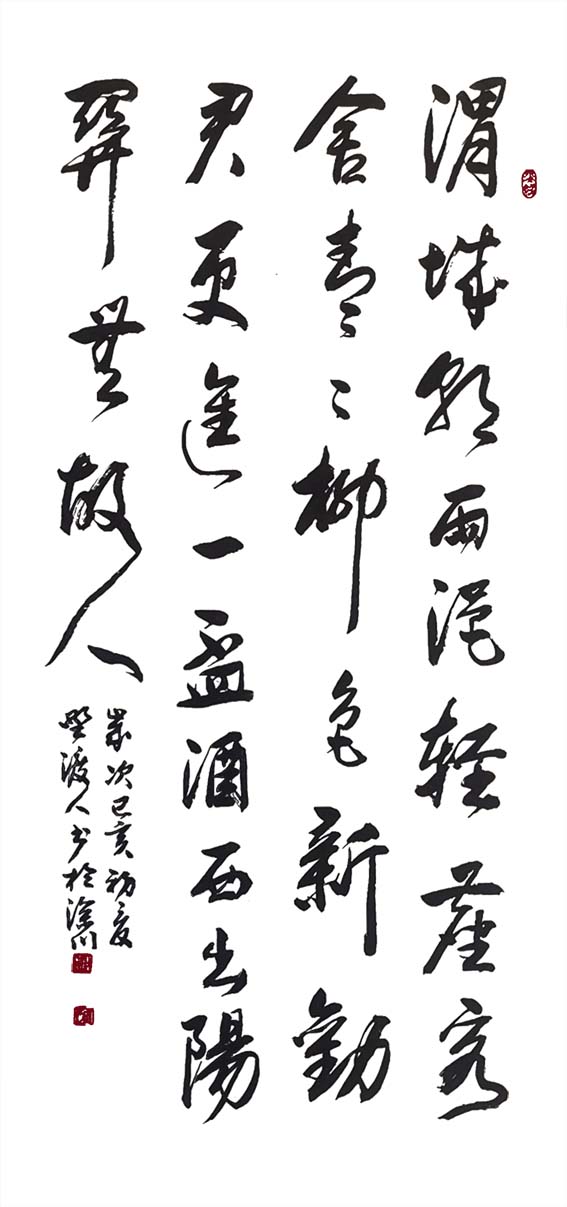 渭城朝雨浥輕塵客
舍青〻柳色新勸
君更進一盃酒西出陽
關無故人
歲次己亥初夏
野渡人书於滁